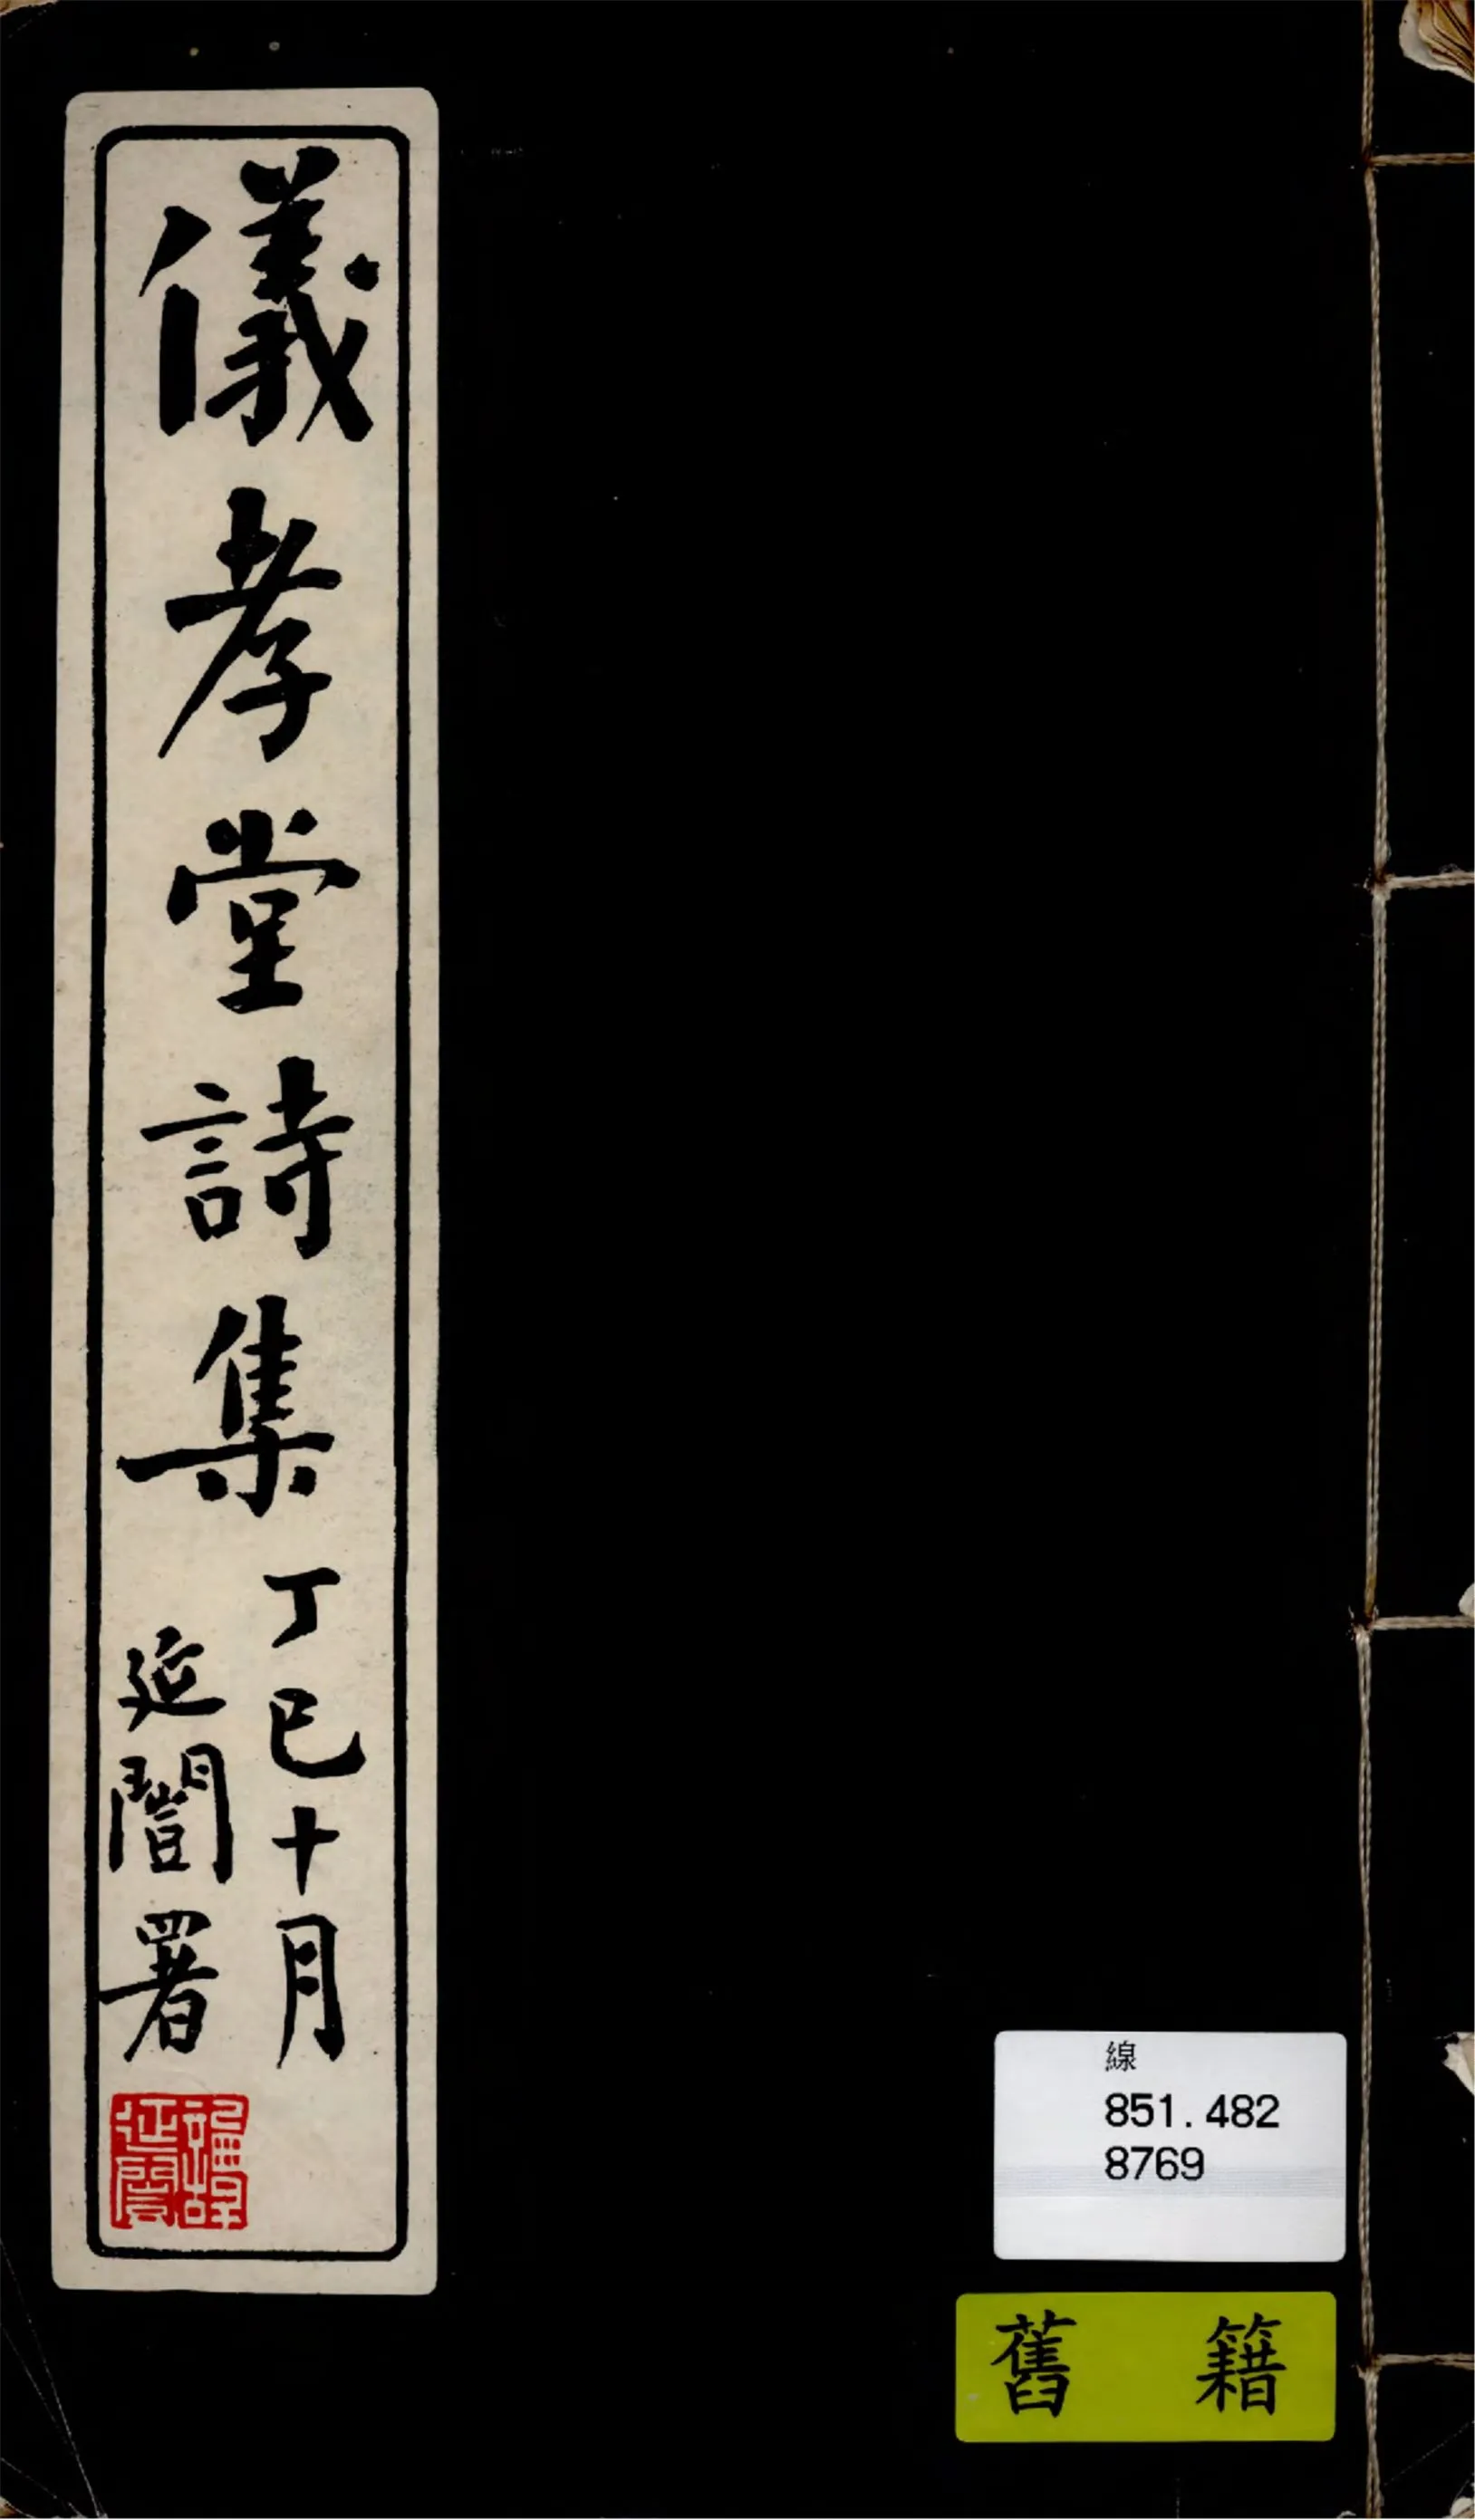 儀孝堂詩集
丁巳十月
延闓署
線
851.482
8769
舊 籍